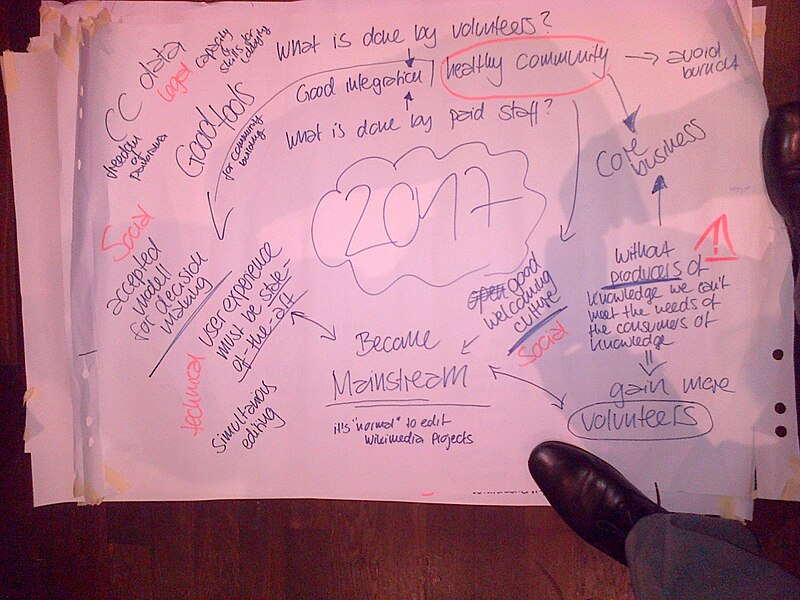 What is done by volunteers?
Good integration
What is done by paid staff?
healthy community
avoid
burnout
Core
business
CC data
Legal
capacity
skills for
freedom
of
Good tools
for community
building
2017
Social
accepted
modell
for decision
making
user experience
must be state-
of-the-art
technical
simultanious
editing
open good
welcoming
culture
Social
Become
Mainstream
it's "normal" to edit
Wikimedia Projects
!
without
producers of
knowledge we can't
meet the needs of
the consumers of
knowledge
gain more
volunteers